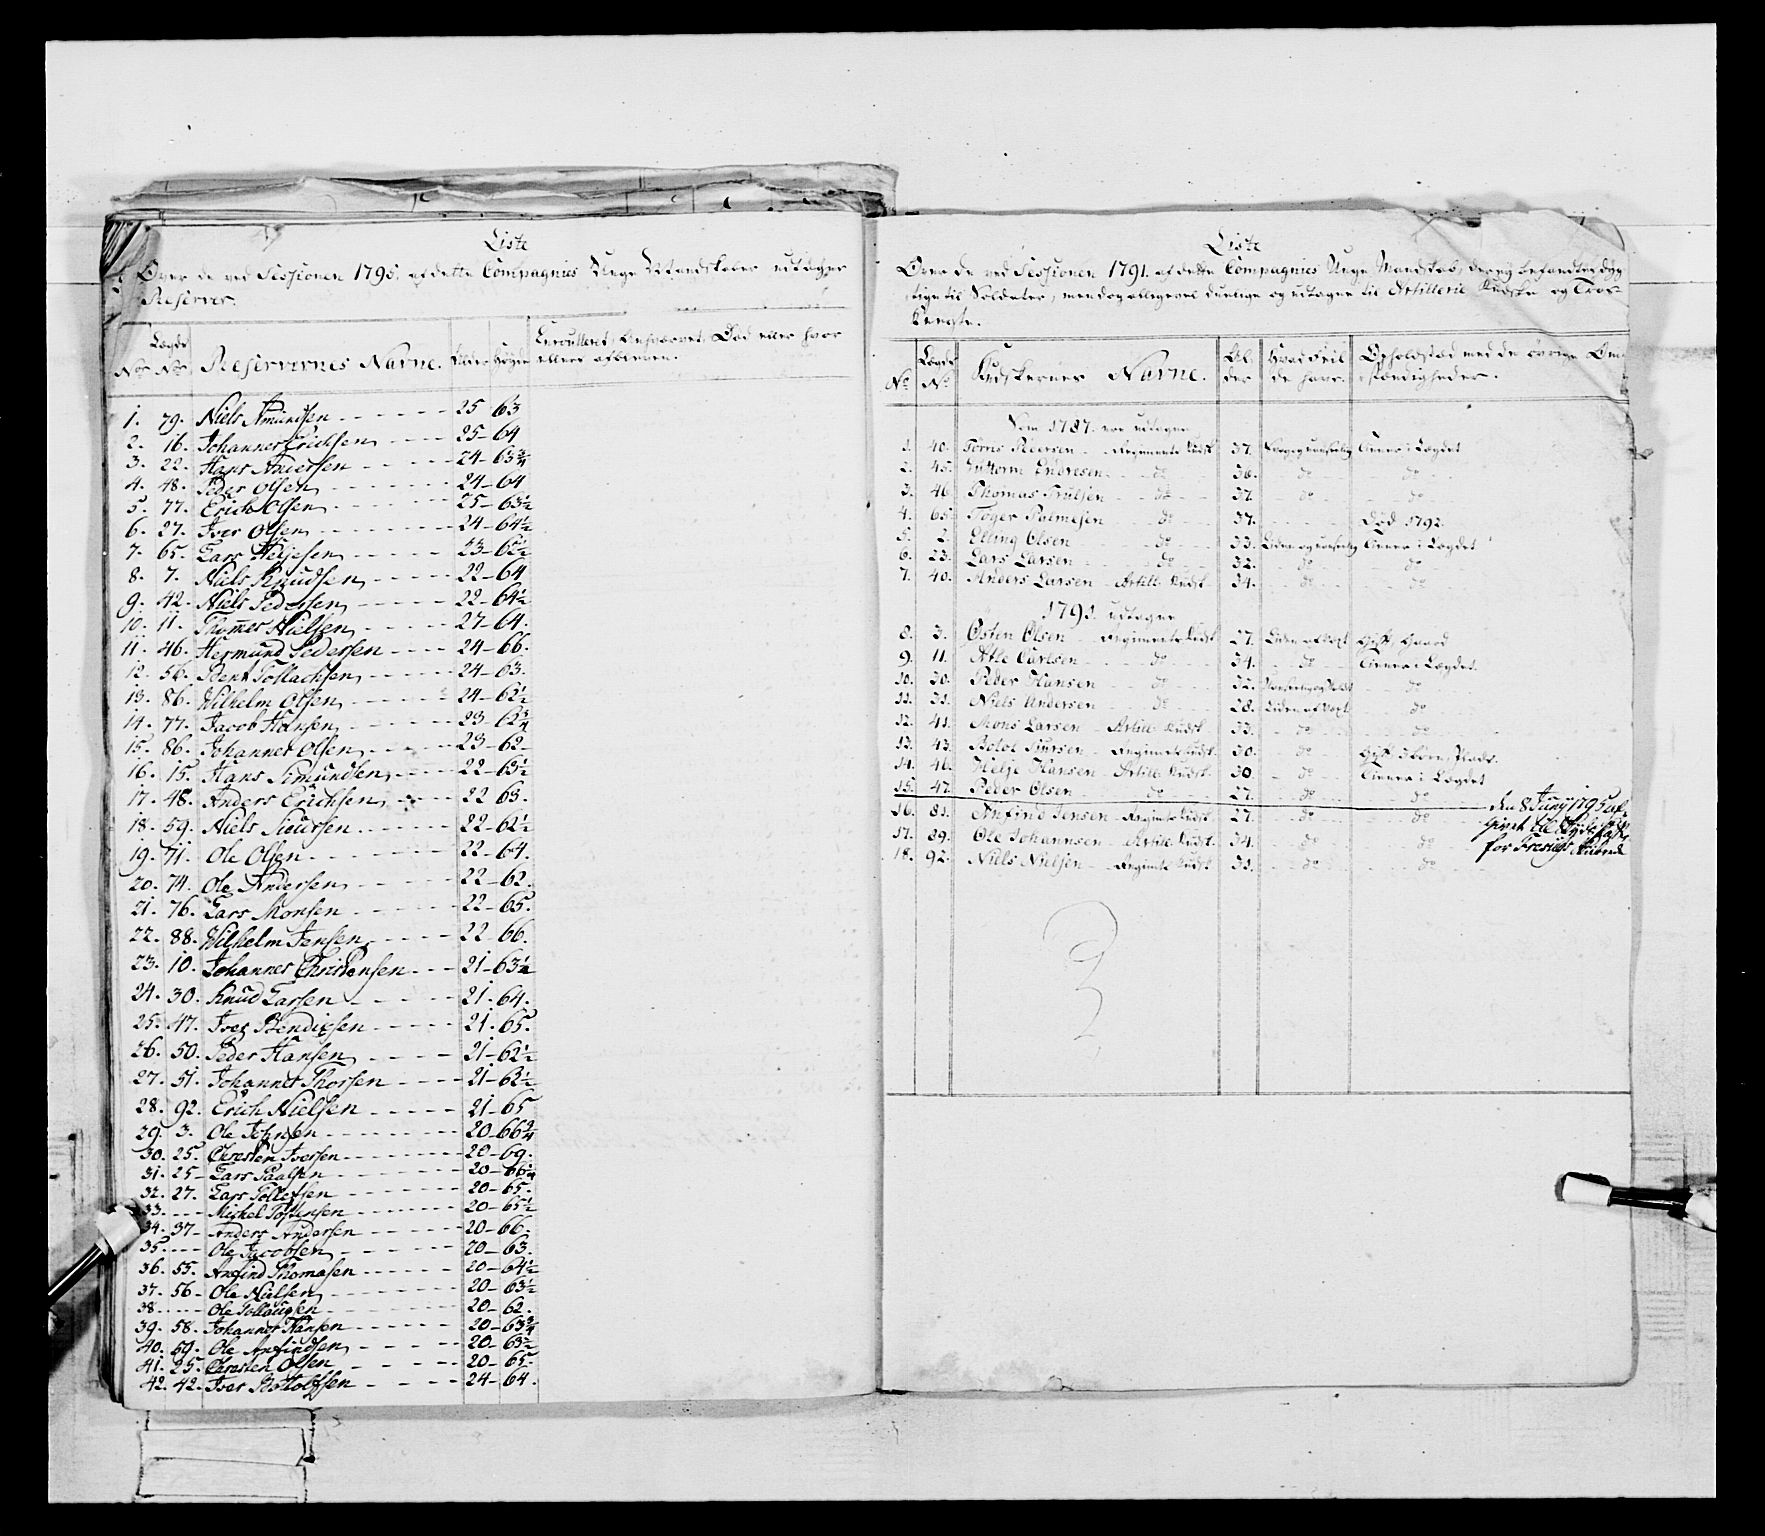 Liste
Over de ved Sessionen 1795. af dette Compagnies Unge Mandskaber udtagne
Reserver.
No Lægds No Reservernes Navne. Alder Høyde Enroulleret, Casseret, Død eller hvor
ellers afbleven.
1. 79. Niels Amundsen 25 63
2. 16. Johannes Erichsen 25 - 64
3. 22. Hans Andersen 24 - 63 3/4
4. 48. Peder Olsen 24 - 64
5. 77. Erich Olsen 25 - 63 1/2
6. 27. Iver Olsen 24 - 64 1/2
7. 65. Lars Heljesen 23 - 65 1/2
8. 7. Niels Knudsen 22 - 64
9. 42. Niels Pedersen 22 - 64 1/2
10. 11. Thommes Nielsen 27 - 64.
11. 46. Hermund Pedersen 24 - 66.
12. 56. Bent Tollachsen 24 - 63.
13. 86. Wilhelm Olsen 24 - 62 1/2
14. 77. Jacob Hansen 23 - 62 3/4
15. 86. Johannes Olsen 23 - 62 -
16. 15. Hans Simundsen 22 - 63 1/2
17. 48. Anders Erichsen 22 63.
18. 59. Niels Siursen 22 - 62 1/2
19. 71. Ole Olsen 22 - 64.
20. 74. Ole Andersen 22 - 62.
21. 76. Lars Monsen 22 - 65.
22. 88. Wilhelm Jensen 22 - 66.
23. 10. Johannes Christensen 21 - 63 1/4
24. 30. Knud Larsen 21. 64.
25. 47. Iver Bendixsen 21. 65.
26. 50. Peder Hansen 21 - 62 1/2
27. 51. Johannes Thorsen 21 - 63 1/2
28. 92. Erich Nielsen 21 - 65
29. 3. Ole Johnsen 20 - 66 3/4
30. 25. Christen Iversen 20 - 69.
31. 25 - Lars Paalsen 20 - 66 1/4
32. 27. Lars Tollefsen 20 - 65.
33. Michel Tostensen 20 - 65 1/2
34. 37 - Anders Andersen 20 - 66.
35. Ole Jacobsen 20 - 63.
36. 55. Anfind Thomasen 20 - 64 1/2
37. 56 - Ole Nielsen 20 - 63 1/2
38 Ole Tollaugsen 20 - 62.
39. 58. Johannes Hansen 20 - 63 3/4
40. 69. Ole Anfindsen 20 - 63 1/2
41. 25. Christen Olsen 20 - 65.
42. 42. Iver Bottolfsen 24 - 64.
Liste
Over de ved Sessionen 1791. af dette Compagnies Unge Mandskab, der ey befandtes dyg-
tige til Soldater, men dog alligevel duelige og udtagne til Artillerie Kudske og Tros-
Knegte.
No. Lægds No Kudskernes Navne. Alder Hvad Feil de have. Opholdsted med de øvrige Om-
stændigheder.
Som 1787. var udtagne
1. 40. Torris Pedersen Regiments Kudsk 37. Anner i Lægdet
2. 45. Guttorm Endresen do 36. do do
3. 46. Thomas Trulsen do 37. do do
4. 65. Toger Palmesen do 37. Død 1792.
5. 2. Elling Olsen do 33. Anner i Lægdet
6. 23. Lars Larsen do 32. do do
7. 40. Anders Larsen Artill: Kudsk 34. do do
1791. udtagne
8. 3. Østen Olsen Regiments Kudsk 27. Liden af Vext Gift, Gaard
9. 11. Atle Carlsen do 34. do Anner i Lægdet.
10. 30. Peder Hansen do 32. do
11. 31. Niels Andersen do 28. Liden af Vext do
12. 41. Mons Larsen Artill: Kudsk 33. do do
13. 43. Botol Siursen Regiments Kudsk 30. do Gift, 3 børn, Plads.
14. 46. Helje Hansen Artill: Kudsk 30 do Anner i Lægdet
15. 47. Peder Olsen do 27. do do den 8 Juny 1795 af-
16. 81. Anfind Jensen Regiments Kudsk 27. do do givet til
17. 89. Ole Johannsen Artill: Kudsk 34. do do for
18. 92. Niels Nielsen Regiments Kudsk 31. do do